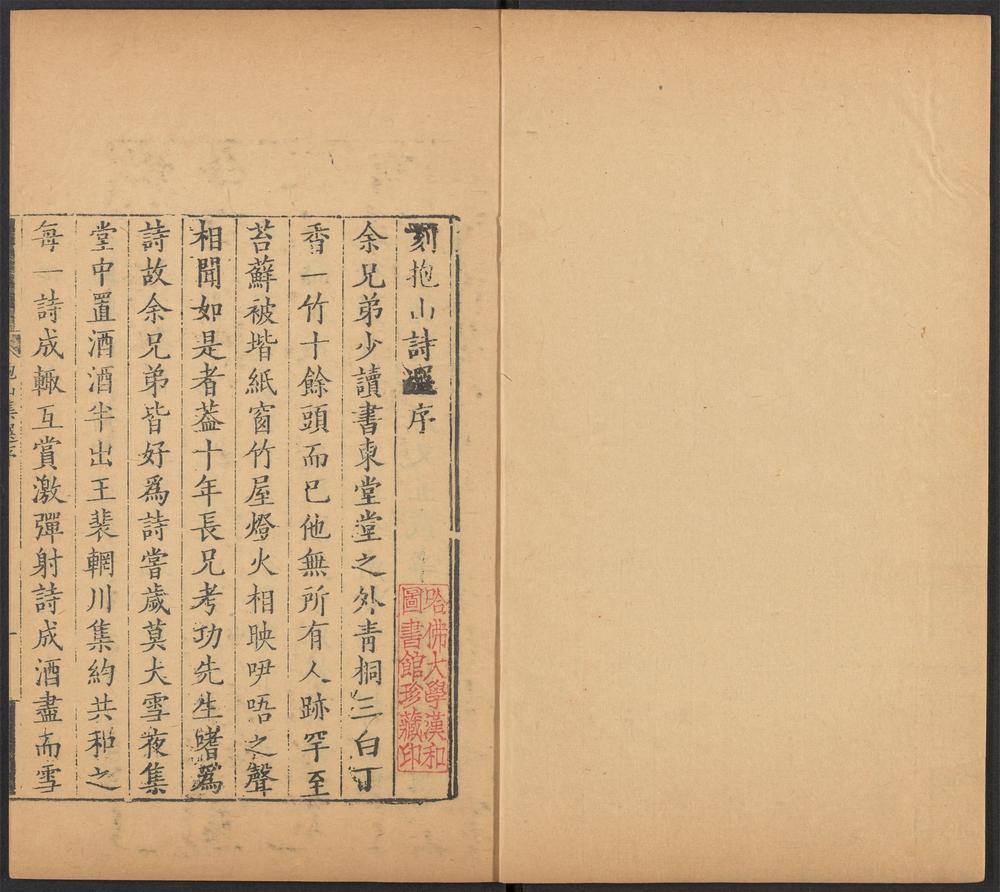 刻抱山詩選序
余兄弟少讀書東堂堂之外青桐三白丁
香一竹十餘頭而已他無所有人跡罕至
苔蘚被堦紙窗竹屋燈火相映咿唔之聲
相聞如是者葢十年長兄考功先生嗜爲
詩故余兄弟皆好爲詩嘗歲莫大雪夜集
堂中置酒酒半出王裴輞川集約共和之
每一詩成輙互賞激彈射詩成酒盡而雪
哈佛大學漢和
圖書館珍藏印